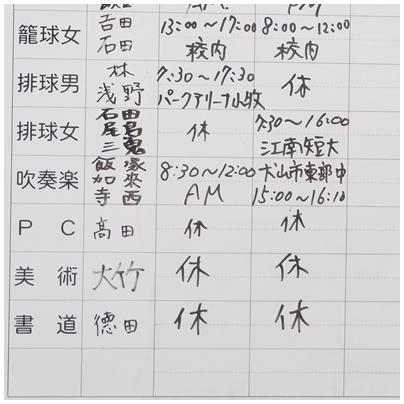 籠球女 吉田 13:00〜17:00 8:00〜12:00
石田 校内 校内
排球男 林 7:30〜17:30 休
浅野 パークアリーナ小牧
排球女 石田 休 7:30〜16:00
尾島
三鬼 江南短大
吹奏楽 飯塚 8:30〜12:00 犬山市東部中
加来
寺西 AM 15:00〜16:10
PC 高田 休 休
美術 大竹 休 休
書道 德田 休 休